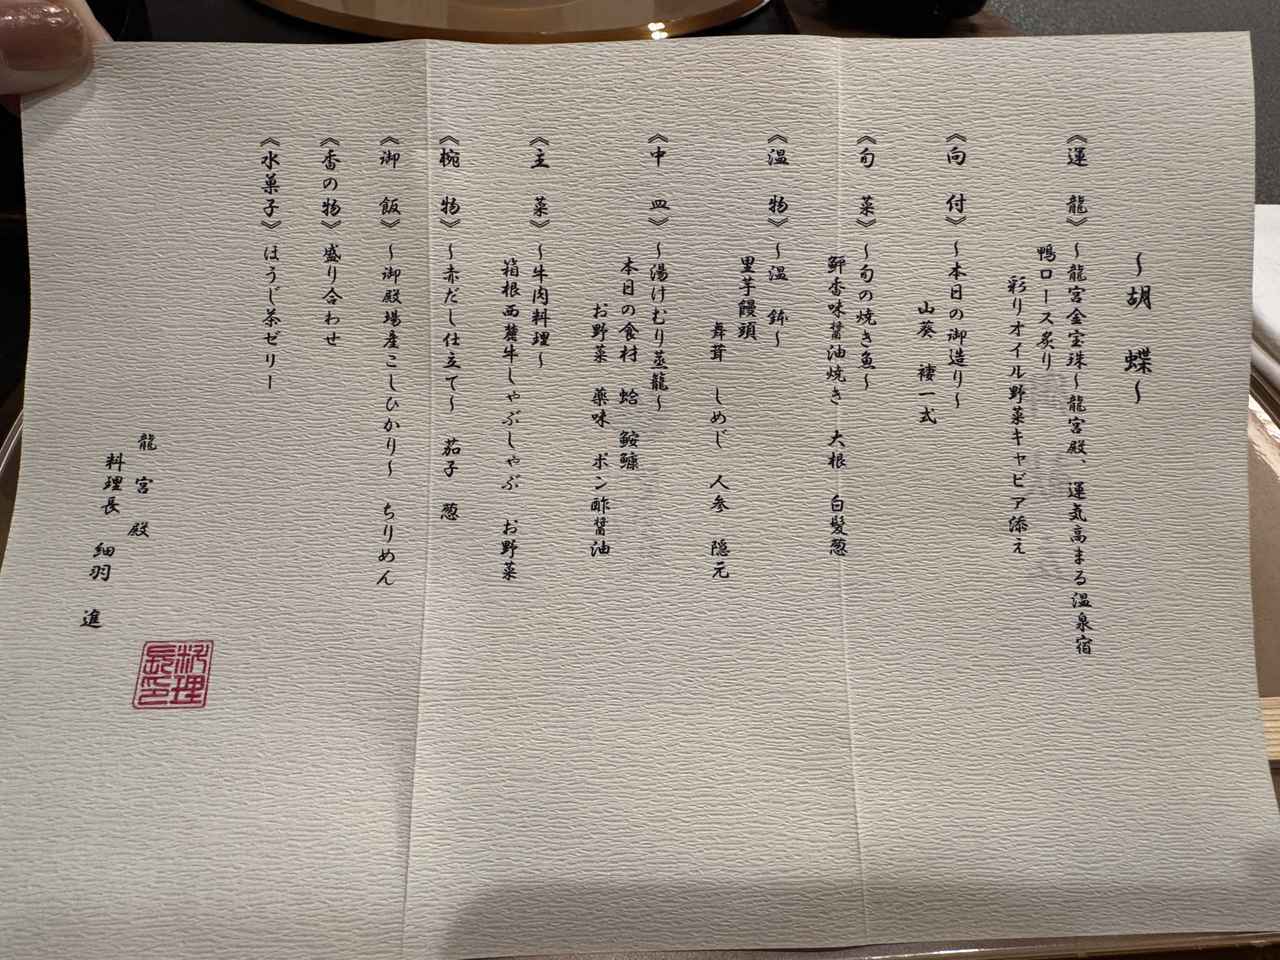 ～胡　蝶～
《運　龍》～龍宮金宝珠～龍宮殿、運気高まる温泉宿
鴨ロース炙り
彩りオイル野菜キャビア添え
《向　付》～本日の御造り～
山葵　褄一式
《旬　菜》～旬の焼き魚～
鮃香味醤油焼き　大根　白髪葱
《温　物》～温　鉢～
里芋饅頭
舞茸　しめじ　人参　隠元
《中　皿》～湯けむり蒸籠～
本日の食材　蛤　鮟鱇
お野菜　薬味　ポン酢醤油
《主　菜》～牛肉料理～
箱根西麓牛しゃぶしゃぶ　お野菜
《椀　物》～赤だし仕立て～　茄子　葱
《御　飯》～御殿場産こしひかり～　ちりめん
《香の物》盛り合わせ
《水菓子》ほうじ茶ゼリー
龍　宮　殿
料理長　細羽　進
料理長印